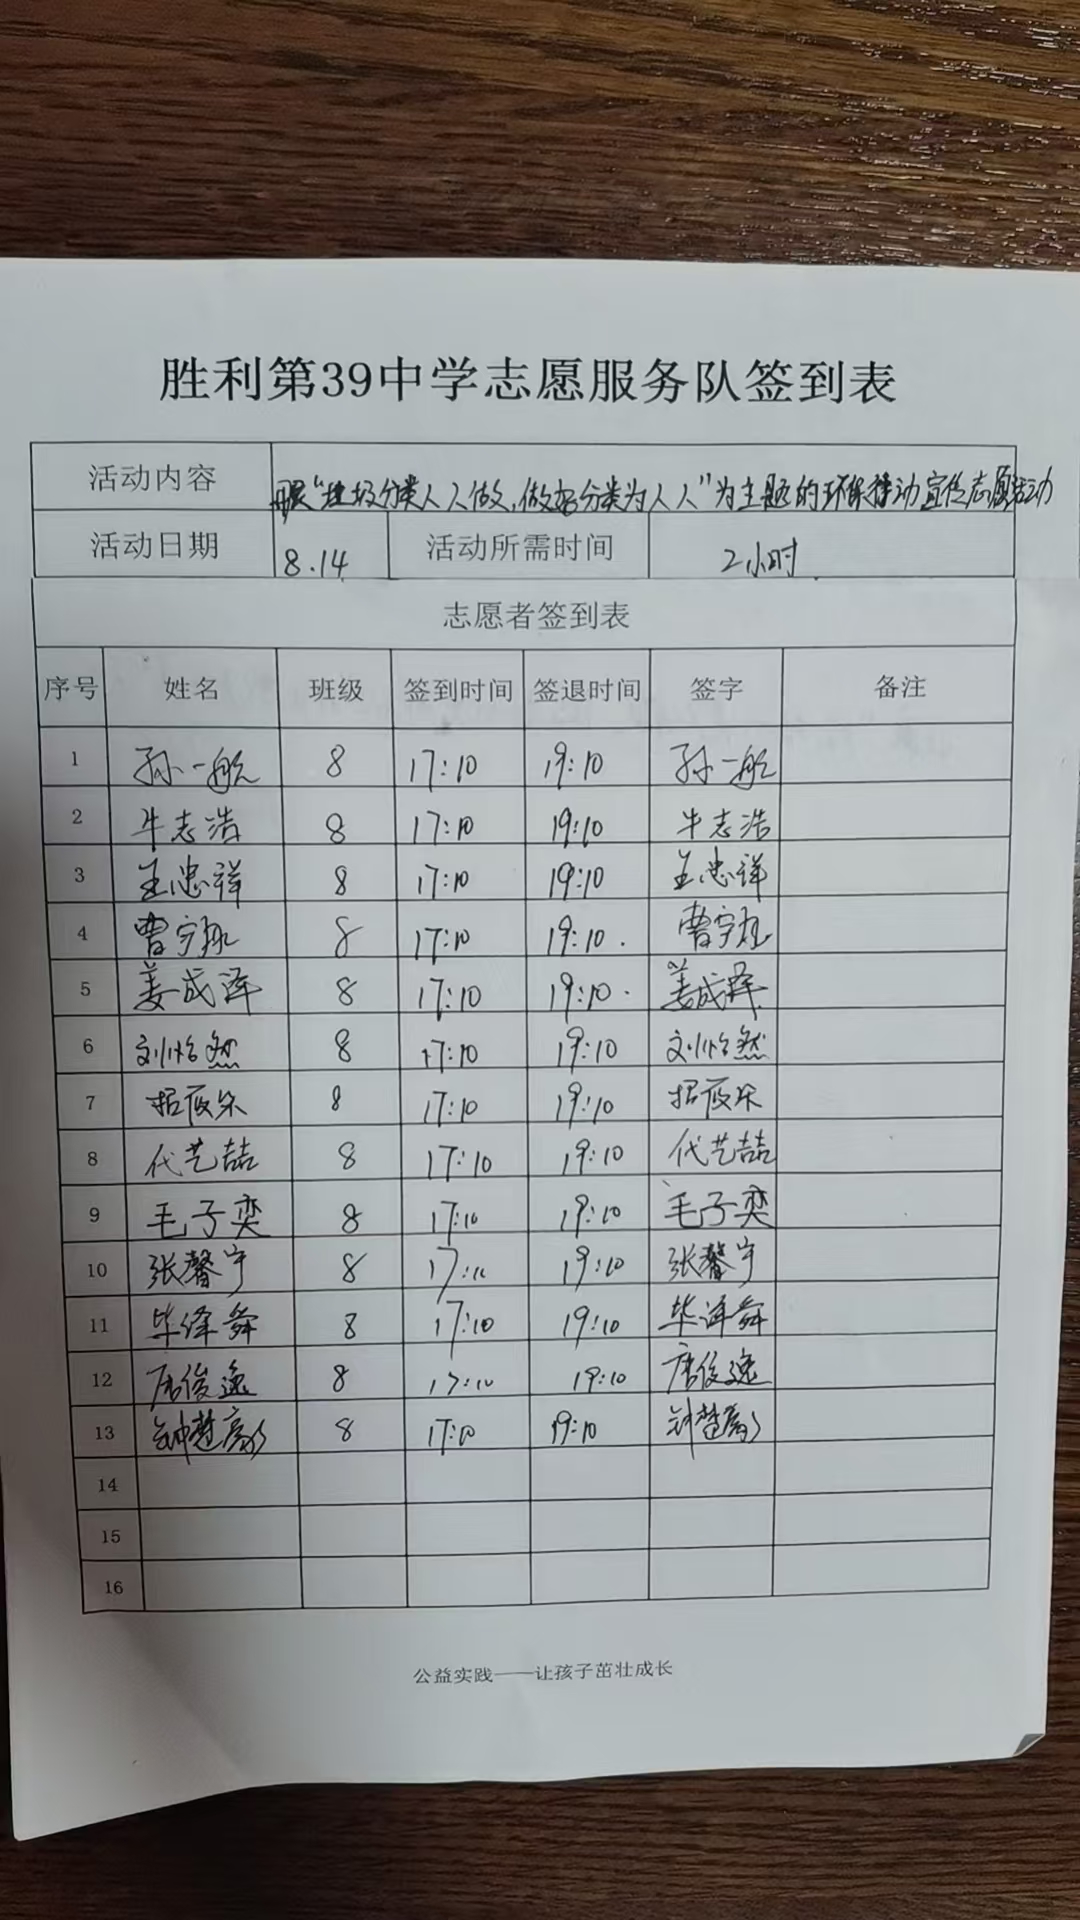 胜利第39中学志愿服务队签到表
活动内容 "垃圾分类人人做，做好分类为人人"为主题的环保行动宣传志愿活动
活动日期 8.14 活动所需时间 2小时
志愿者签到表
序号 姓名 班级 签到时间 签退时间 签字 备注
1 孙一航 8 17:10 19:10 孙一航
2 牛志浩 8 17:10 19:10 牛志浩
3 孟忠祥 8 17:10 19:10 孟忠祥
4 曹宇 8 17:10 19:10 曹宇
5 姜成泽 8 17:10 19:10 姜成泽
6 刘怡然 8 17:10 19:10 刘怡然
7 8 17:10 19:10
8 代艺喆 8 17:10 19:10 代艺喆
9 毛子奕 8 17:10 19:10 毛子奕
10 张馨宇 8 17:10 19:10 张馨宇
11 毕泽舜 8 17:10 19:10 毕泽舜
12 唐俊逸 8 17:10 19:10 唐俊逸
13 钟楚 8 17:10 19:10 钟楚
14
15
16
公益实践——让孩子茁壮成长